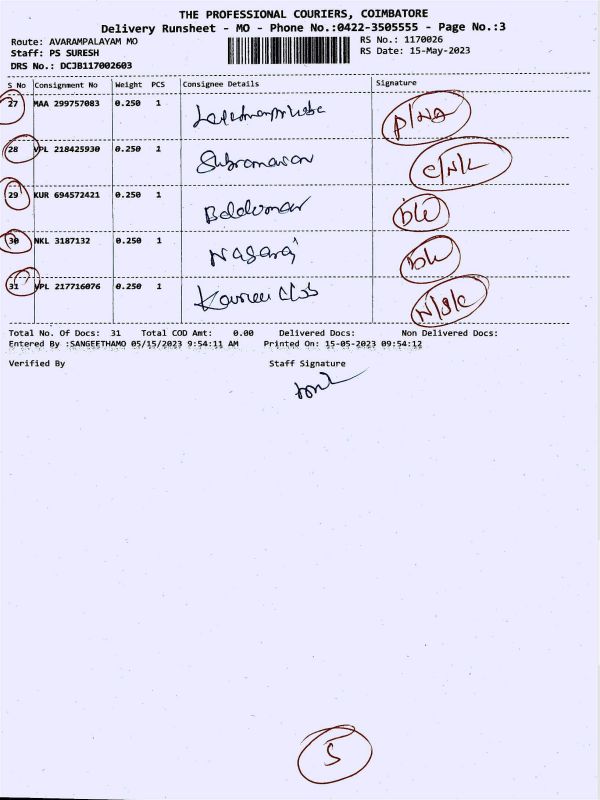 THE PROFESSIONAL COURIERS, COIMBATORE
Delivery Runsheet - MO - Phone No.:0422-3505555 - Page No.:3
Route: AVARAMPALAYAM MO RS No.: 1170026
Staff: PS SURESH RS Date: 15-May-2023
DRS No.: DCJB117002603
S No Consignment No Weight PCS Consignee Details Signature
27 MAA 299757083 0.250 1 P/NA
28 VPL 218425930 0.250 1 Subramanan C/N/L
29 KUR 694572421 0.250 1
30 NKL 3187132 0.250 1 Nagaraj
31 VPL 217716076 0.250 1 N/S/C
Total No. Of Docs: 31 Total COD Amt: 0.00 Delivered Docs: Non Delivered Docs:
Entered By :SANGEETHAMO 05/15/2023 9:54:11 AM Printed On: 15-05-2023 09:54:12
Verified By Staff Signature
5